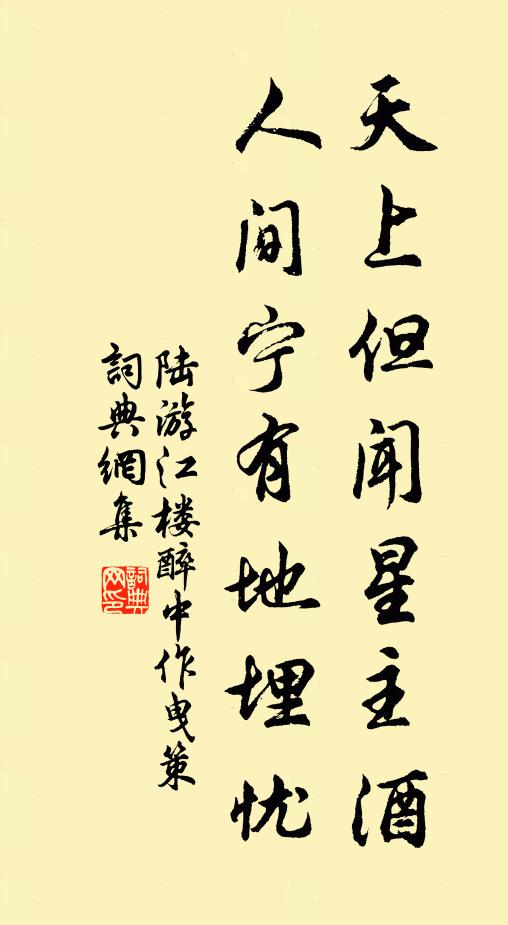 天上但闻星主酒
人间宁有地埋忧
陆游江楼醉中作曳策
詞典網集
詞典网印